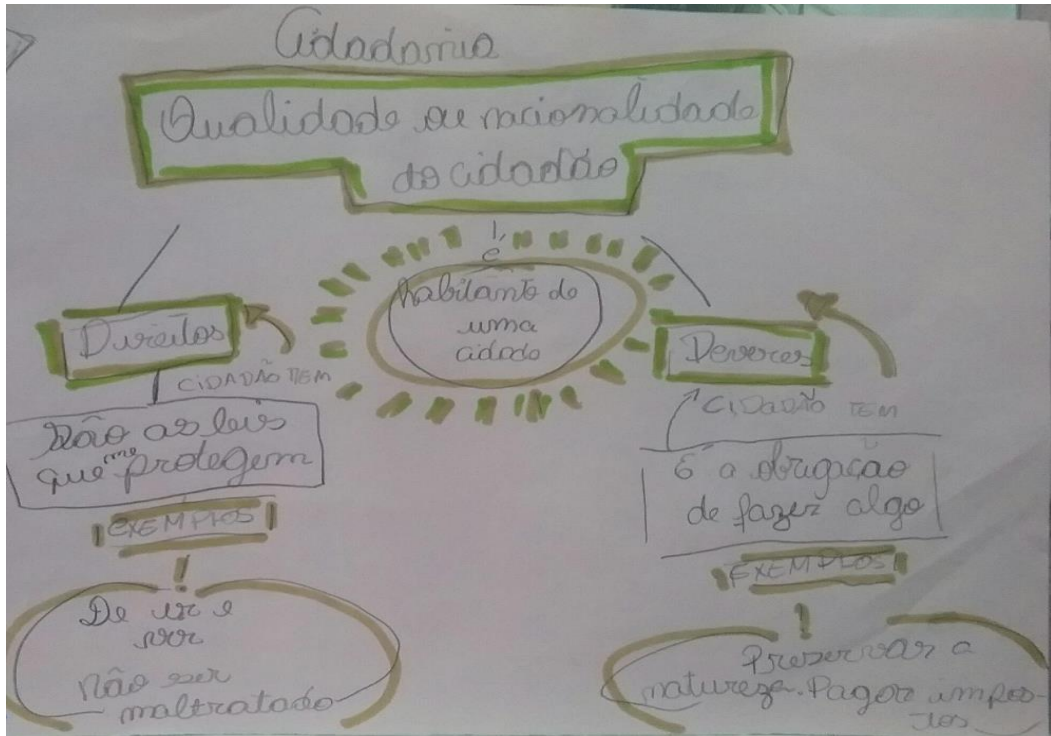 Cidadania
Qualidade ou nacionalidade
do cidadão
é
habitante de
uma
cidade
Direitos
CIDADÃO TEM
São as leis
que me protegem
EXEMPLOS
De ir e
vir
Não ser
maltratado
Deveres
CIDADÃO TEM
É a obrigação
de fazer algo
EXEMPLOS
Preservar a
natureza. Pagar impos-
tos